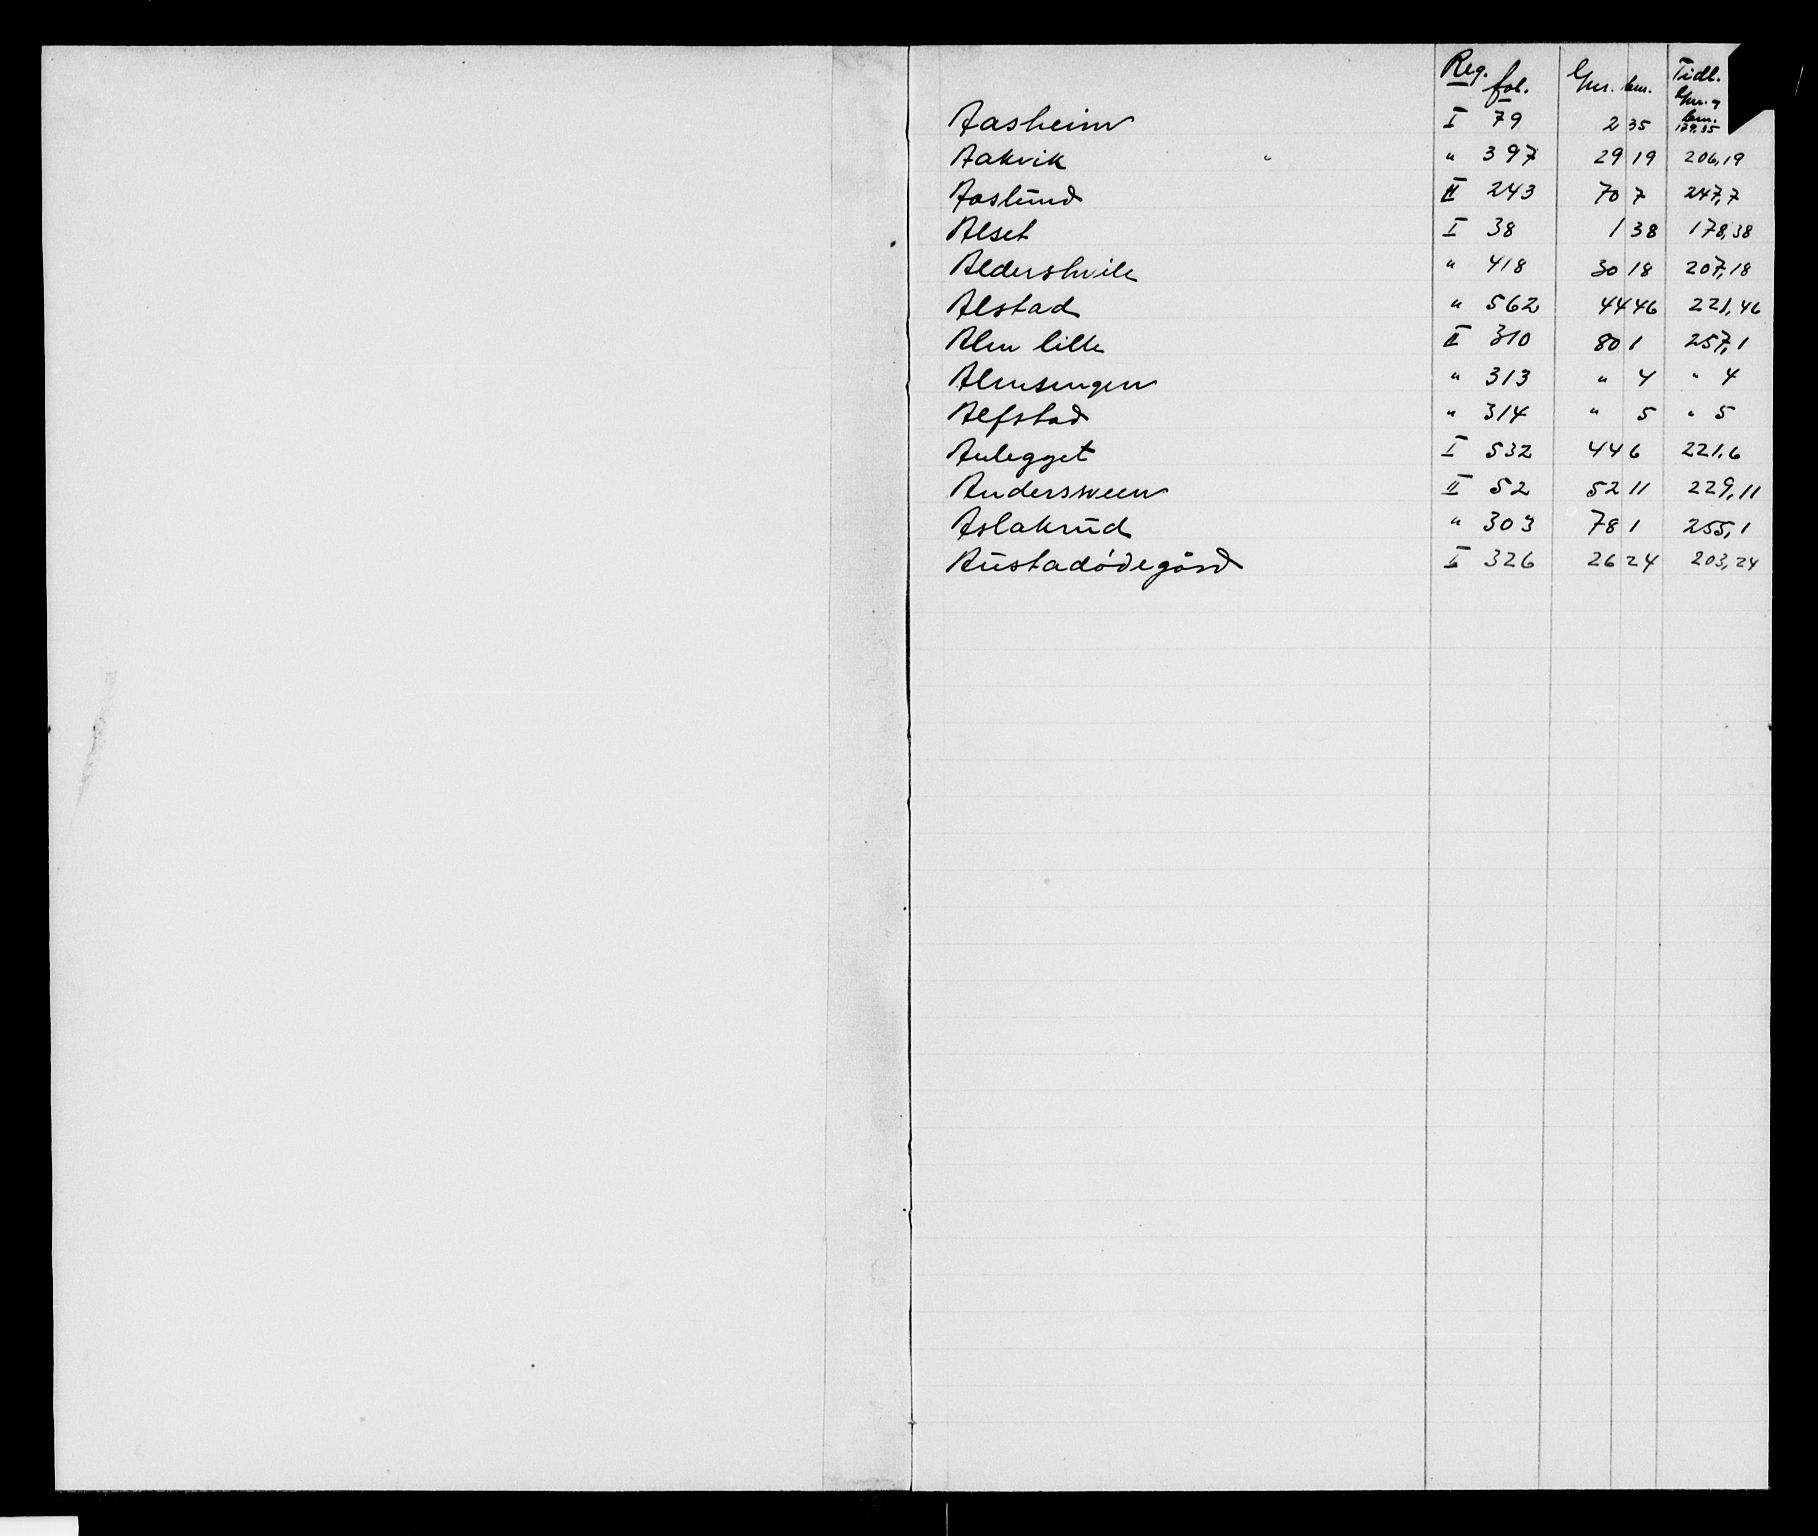 Reg. fol. Gnr. bnr. Tidl. Gnr. og bnr.
Aasheim I 79 2 35 179,35
Aakvik " 397 29 19 206,19
Aaslund II 243 70 7 247,7
Alset I 38 1 38 178,38
Aldershvile " 418 30 18 207,18
Alstad " 562 44 46 221,46
Alm lille II 310 80 1 257,1
Almsengen " 313 " 4 " 4
Alfstad " 314 " 5 " 5
Anlegget I 532 44 6 221,6
Andersveen II 52 52 11 229,11
Aslakrud " 303 78 1 255,1
Austadødegård I 326 26 24 203,24